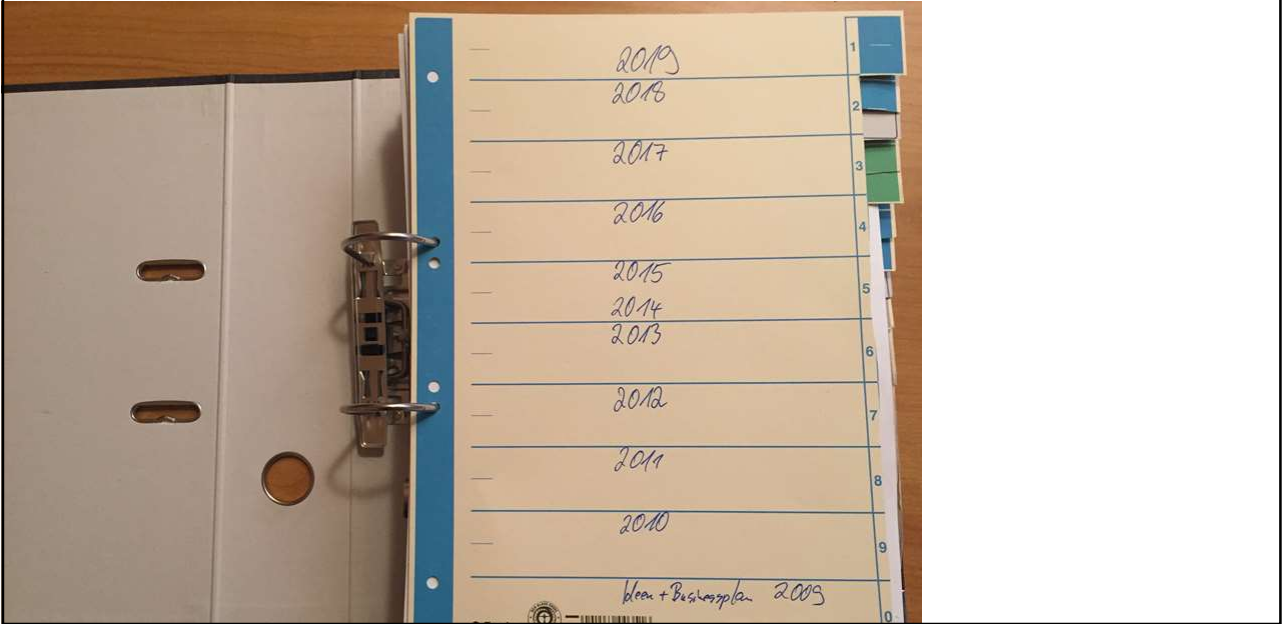 2019
1
2018
2
2017
3
2016
4
2015
5
2014
2013
6
2012
7
2011
8
2010
9
Ideen + Businessplan 2009
0